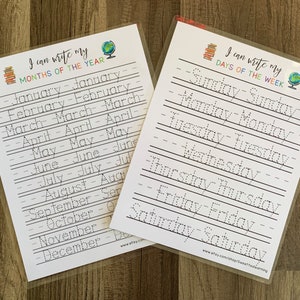 I can write my
MONTHS OF THE YEAR
January January
February February
March March March
April April April
May May May
June June June
July July July
August August
September Sept
October Octo
November Nov
December Dece
I can write my
DAYS OF THE WEEK
Sunday Sunday
Monday Monday
Tuesday Tuesday
Wednesday
Thursday Thursday
Friday Friday
Saturday Saturday